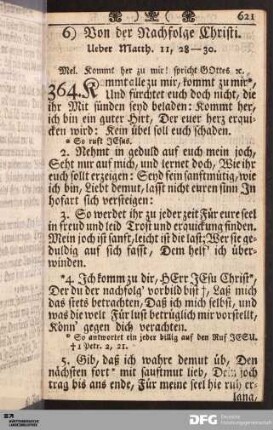 621
6) Von der Nachfolge Christi.
Ueber Matth. 11, 28—30.
Mel. Kommt her zu mir! spricht GOttes ꝛc.
364. Kommt alle zu mir, kommt zu mir*,
Und fürchtet euch doch nicht, die
ihr Mit sünden seyd beladen: Kommt her,
ich bin ein guter Hirt, Der euer herz erqui-
cken wird: Kein übel soll euch schaden.
* So ruft JEsus.
2. Nehmt in geduld auf euch mein joch,
Seht nur auf mich, und lernet doch, Wie ihr
euch sollt erzeigen: Seyd fein sanftmütig, wie
ich bin, Liebt demut, lasst nicht euren sinn In
hofart sich versteigen:
3. So werdet ihr zu jeder zeit Für eure seel
in freud und leid Trost und erquickung finden.
Mein joch ist sanft, leicht ist die last; Wer sie ge-
duldig auf sich fasst, Dem helf' ich über-
winden.
*4. Ich komm zu dir, HErr JEsu Christ*,
Der du der nachfolg' vorbild bist †, Laß mich
das stets betrachten, Daß ich mich selbst, und
was die welt Für lust betrüglich mir vorstellt,
Könn' gegen dich verachten.
* So antwortet ein jeder billig auf den Ruf JESU.
† 1 Petr. 2, 21.
5. Gib, daß ich wahre demut üb, Den
nächsten fort* mit sanftmut lieb, Dein joch
trag bis ans ende, Für meine seel hie ruh er-
lang,
DFG